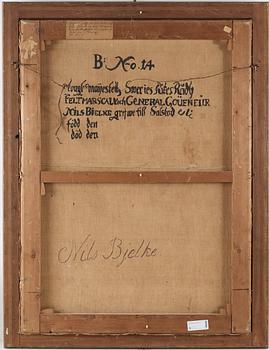 B: No. 14
Kongl: maijestetz Sweries Rikes Rådh
FELTMARSCALK och GENERAL GOUENEUR
NILS BIELKE grefwe till Salstad etc:
född den
död den
Nils Bjelke